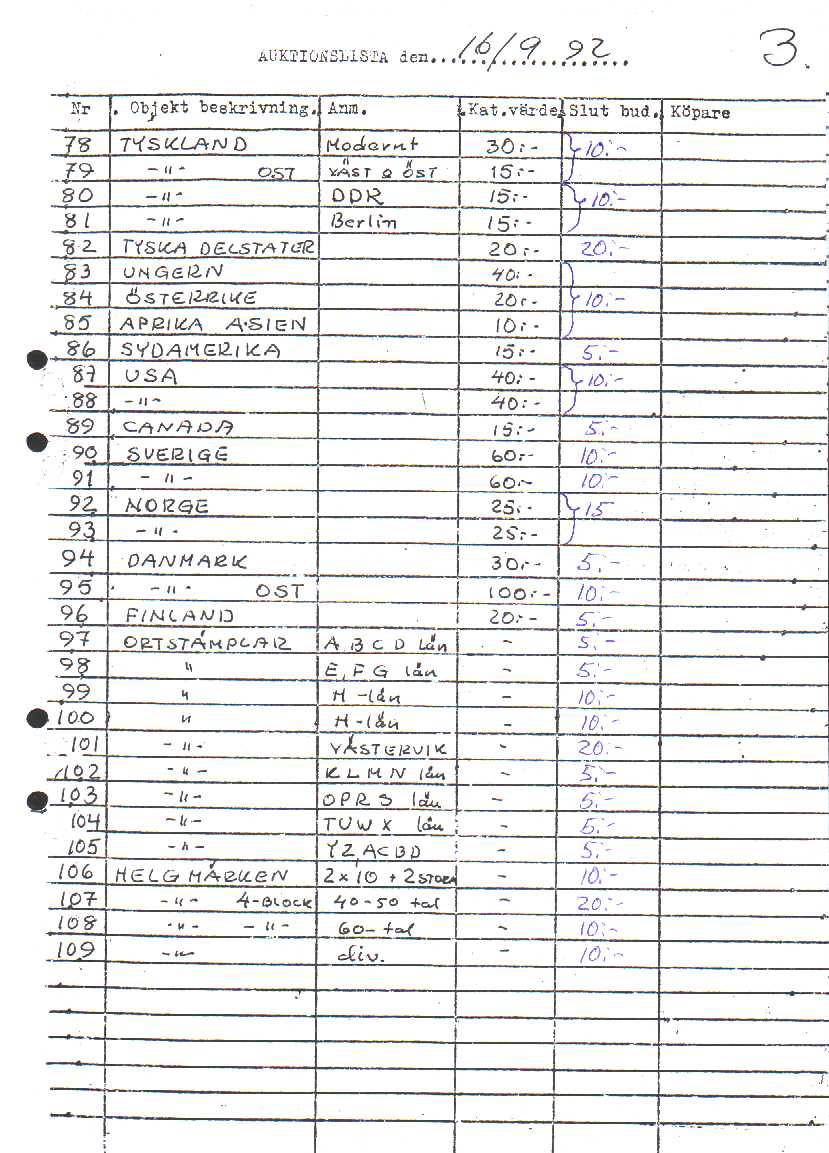 AUKTIONSLISTA den 16/9 92 3.
Nr Objekt beskrivning. Anm. Kat.värde Slut bud. Köpare
78 TYSKLAND Modernt 30:- 10:-
79 -"- OST VÄST & ÖST 15:-
80 -"- DDR 15:- 10:-
81 -"- Berlin 15:-
82 TYSKA DELSTATER 20:- 20:-
83 UNGERN 40:-
84 ÖSTERRIKE 20:- 10:-
85 AFRIKA ASIEN 10:-
86 SYDAMERIKA 15:- 5:-
87 USA 40:- 10:-
88 -"- 40:-
89 CANADA 15:- 5:-
90 SVERIGE 60:- 10:-
91 -"- 60:- 10:-
92 NORGE 25:- 15
93 -"- 25:-
94 DANMARK 30:- 5:-
95 -"- OST 100:- 10:-
96 FINLAND 20:- 5:-
97 ORTSTÄMPLAR A B C D län - 5:-
98 " E, F G län - 5:-
99 " H-län - 10:-
100 " H-län - 10:-
101 -"- VÄSTERVIK - 20:-
102 -"- K L M N län - 5:-
103 -"- O P R S län - 5:-
104 -"- T U W X län - 5:-
105 -"- Y Z, AC BD - 5:-
106 HELG MÄRKEN 2x10 + 2 STORA - 10:-
107 -"- 4-BLOCK 40-50 tal - 20:-
108 -"- -"- 60-tal - 10:-
109 -"- div. - 10:-